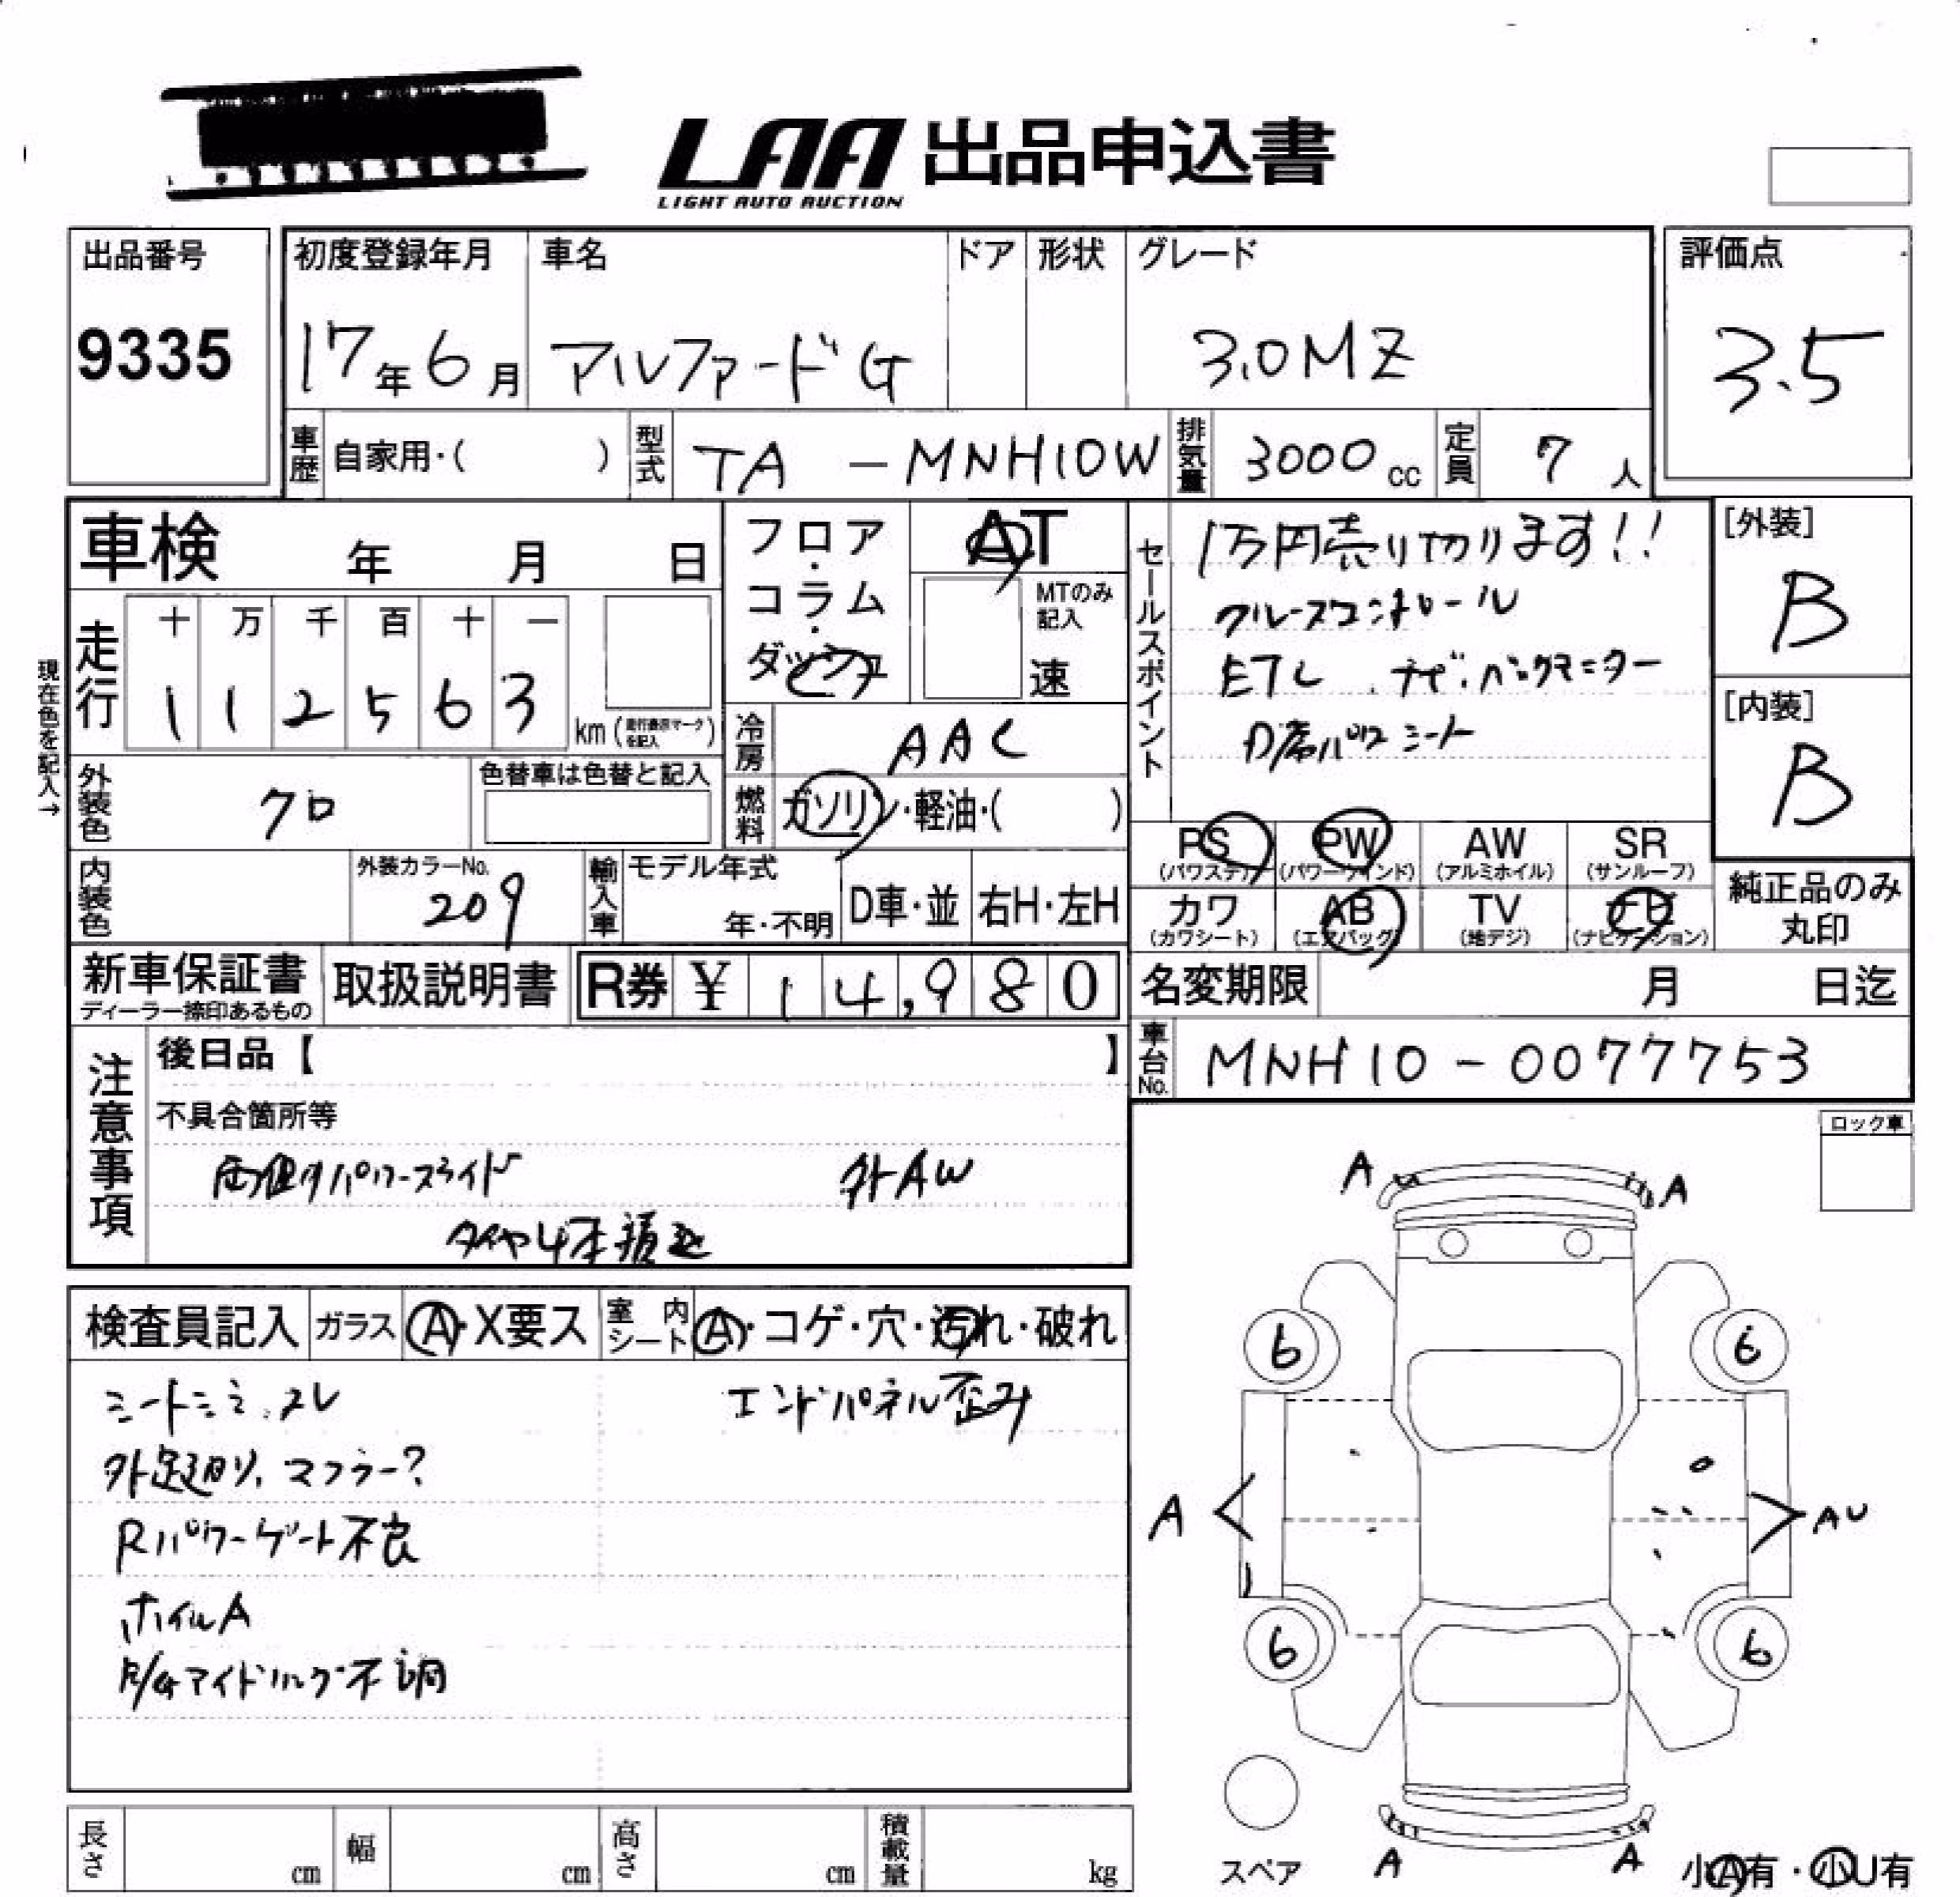 LAA 出品申込書
LIGHT AUTO AUCTION
出品番号
9335
初度登録年月
17年6月
車名
アルファードG
ドア
形状
グレード
3.0MZ
評価点
3.5
車歴 自家用・( )
型式 TA - MNH10W
排気量 3000cc
定員 7人
車検 年 月 日
フロア・コラム・ダッシュ
AT
MTのみ記入
速
セールスポイント
1万円売り切ります!!
クルーズコントロール
ETC ナビ・バックモニター
D席パワシート
[外装]
B
[内装]
B
現在色を記入→
走行
十 万 千 百 十 一
1 1 2 5 6 3
km (走行表示マークを記入)
冷房 AAC
燃料 ガソリン・軽油・( )
外装色 クロ
色替車は色替と記入
内装色
外装カラーNo.
209
輸入車
モデル年式
年・不明
D車・並
右H・左H
PS (パワステ)
PW (パワーウインド)
AW (アルミホイル)
SR (サンルーフ)
カワ (カワシート)
AB (エアバッグ)
TV (地デジ)
ナビ (ナビゲーション)
純正品のみ丸印
新車保証書
ディーラー捺印あるもの
取扱説明書
R券 ¥ 14,980
名変期限 月 日迄
車台No. MNH10-0077753
注意事項
後日品【 】
不具合箇所等
両側パワースライド 外AW
タイヤ4本積込
ロック車
検査員記入
ガラス A・X要ス
室内シート A・コゲ・穴・汚れ・破れ
シートシミ、スレ
エンドパネル歪み
外足廻り、マフラー?
Rパワーゲート不良
ホイルA
E/Gアイドリング不調
A A
6 6
A AU
6 6
スペア
A A
小A有・小U有
長さ cm
幅 cm
高さ cm
積載量 kg